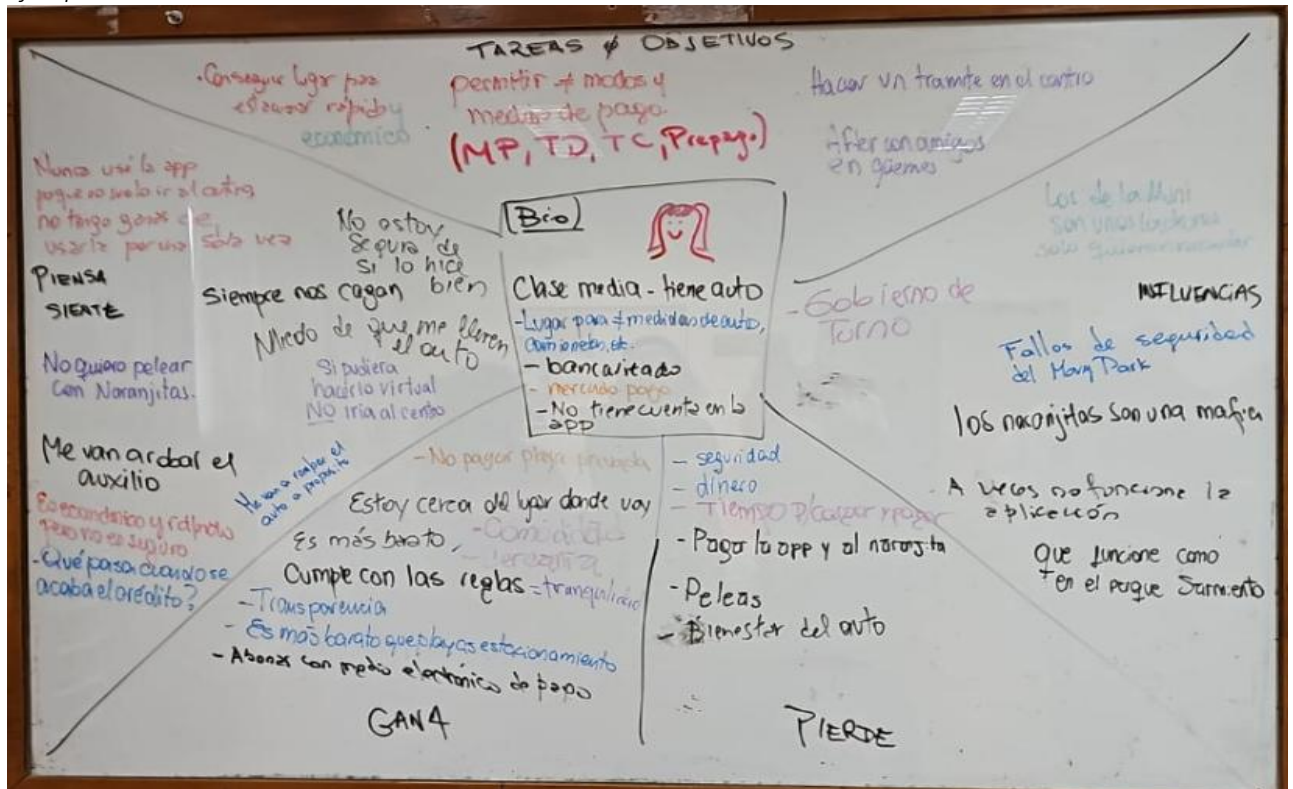 TAREAS & OBJETIVOS
• Conseguir lugar para
estacionar rápido y
económico
permitir ≠ modos y
medios de pago
(MP, TD, TC, Prepago)
Hacer un tramite en el centro
After con amigos
en güemes
Nunca usé la app
porque no suelo ir al centro
no tengo ganas de
usarla por una sola vez
PIENSA
SIENTE
No estoy
segura de
si lo hice
bien
Siempre nos cagan
Miedo de que me lleven
el auto
No quiero pelear
con Naranjitas.
Si pudiera
hacerlo virtual
NO iria al centro
Me van a robar el
auxilio
Me van a romper el
auto a propósito
Es económico y rápido
pero no es seguro
- Qué pasa cuando se
acaba el crédito?
Bio
Clase media - tiene auto
- Lugar para ≠ medidas de auto,
camionetas, etc.
- bancarizado
- mercado pago
- No tiene cuenta en la
app
Los de la Muni
son unos
solo quieren recaudar
INFLUENCIAS
- Gobierno de
Turno
Fallos de seguridad
del Movy Park
los naranjitas son una mafia
- A veces no funciona la
aplicación
Que funcione como
en el parque Sarmiento
- No pagar playa privada
Estoy cerca del lugar donde voy
Es más barato,
- Comodidad
- Cercanía
Cumple con las reglas = tranquilidad
- Transparencia
- Es más barato que playas estacionamiento
- Abonar con medio electrónico de pago
GANA
- seguridad
- dinero
- Tiempo p/ cargar y pagar
- Pagar la app y al naranjita
- Peleas
- Bienestar del auto
PIERDE